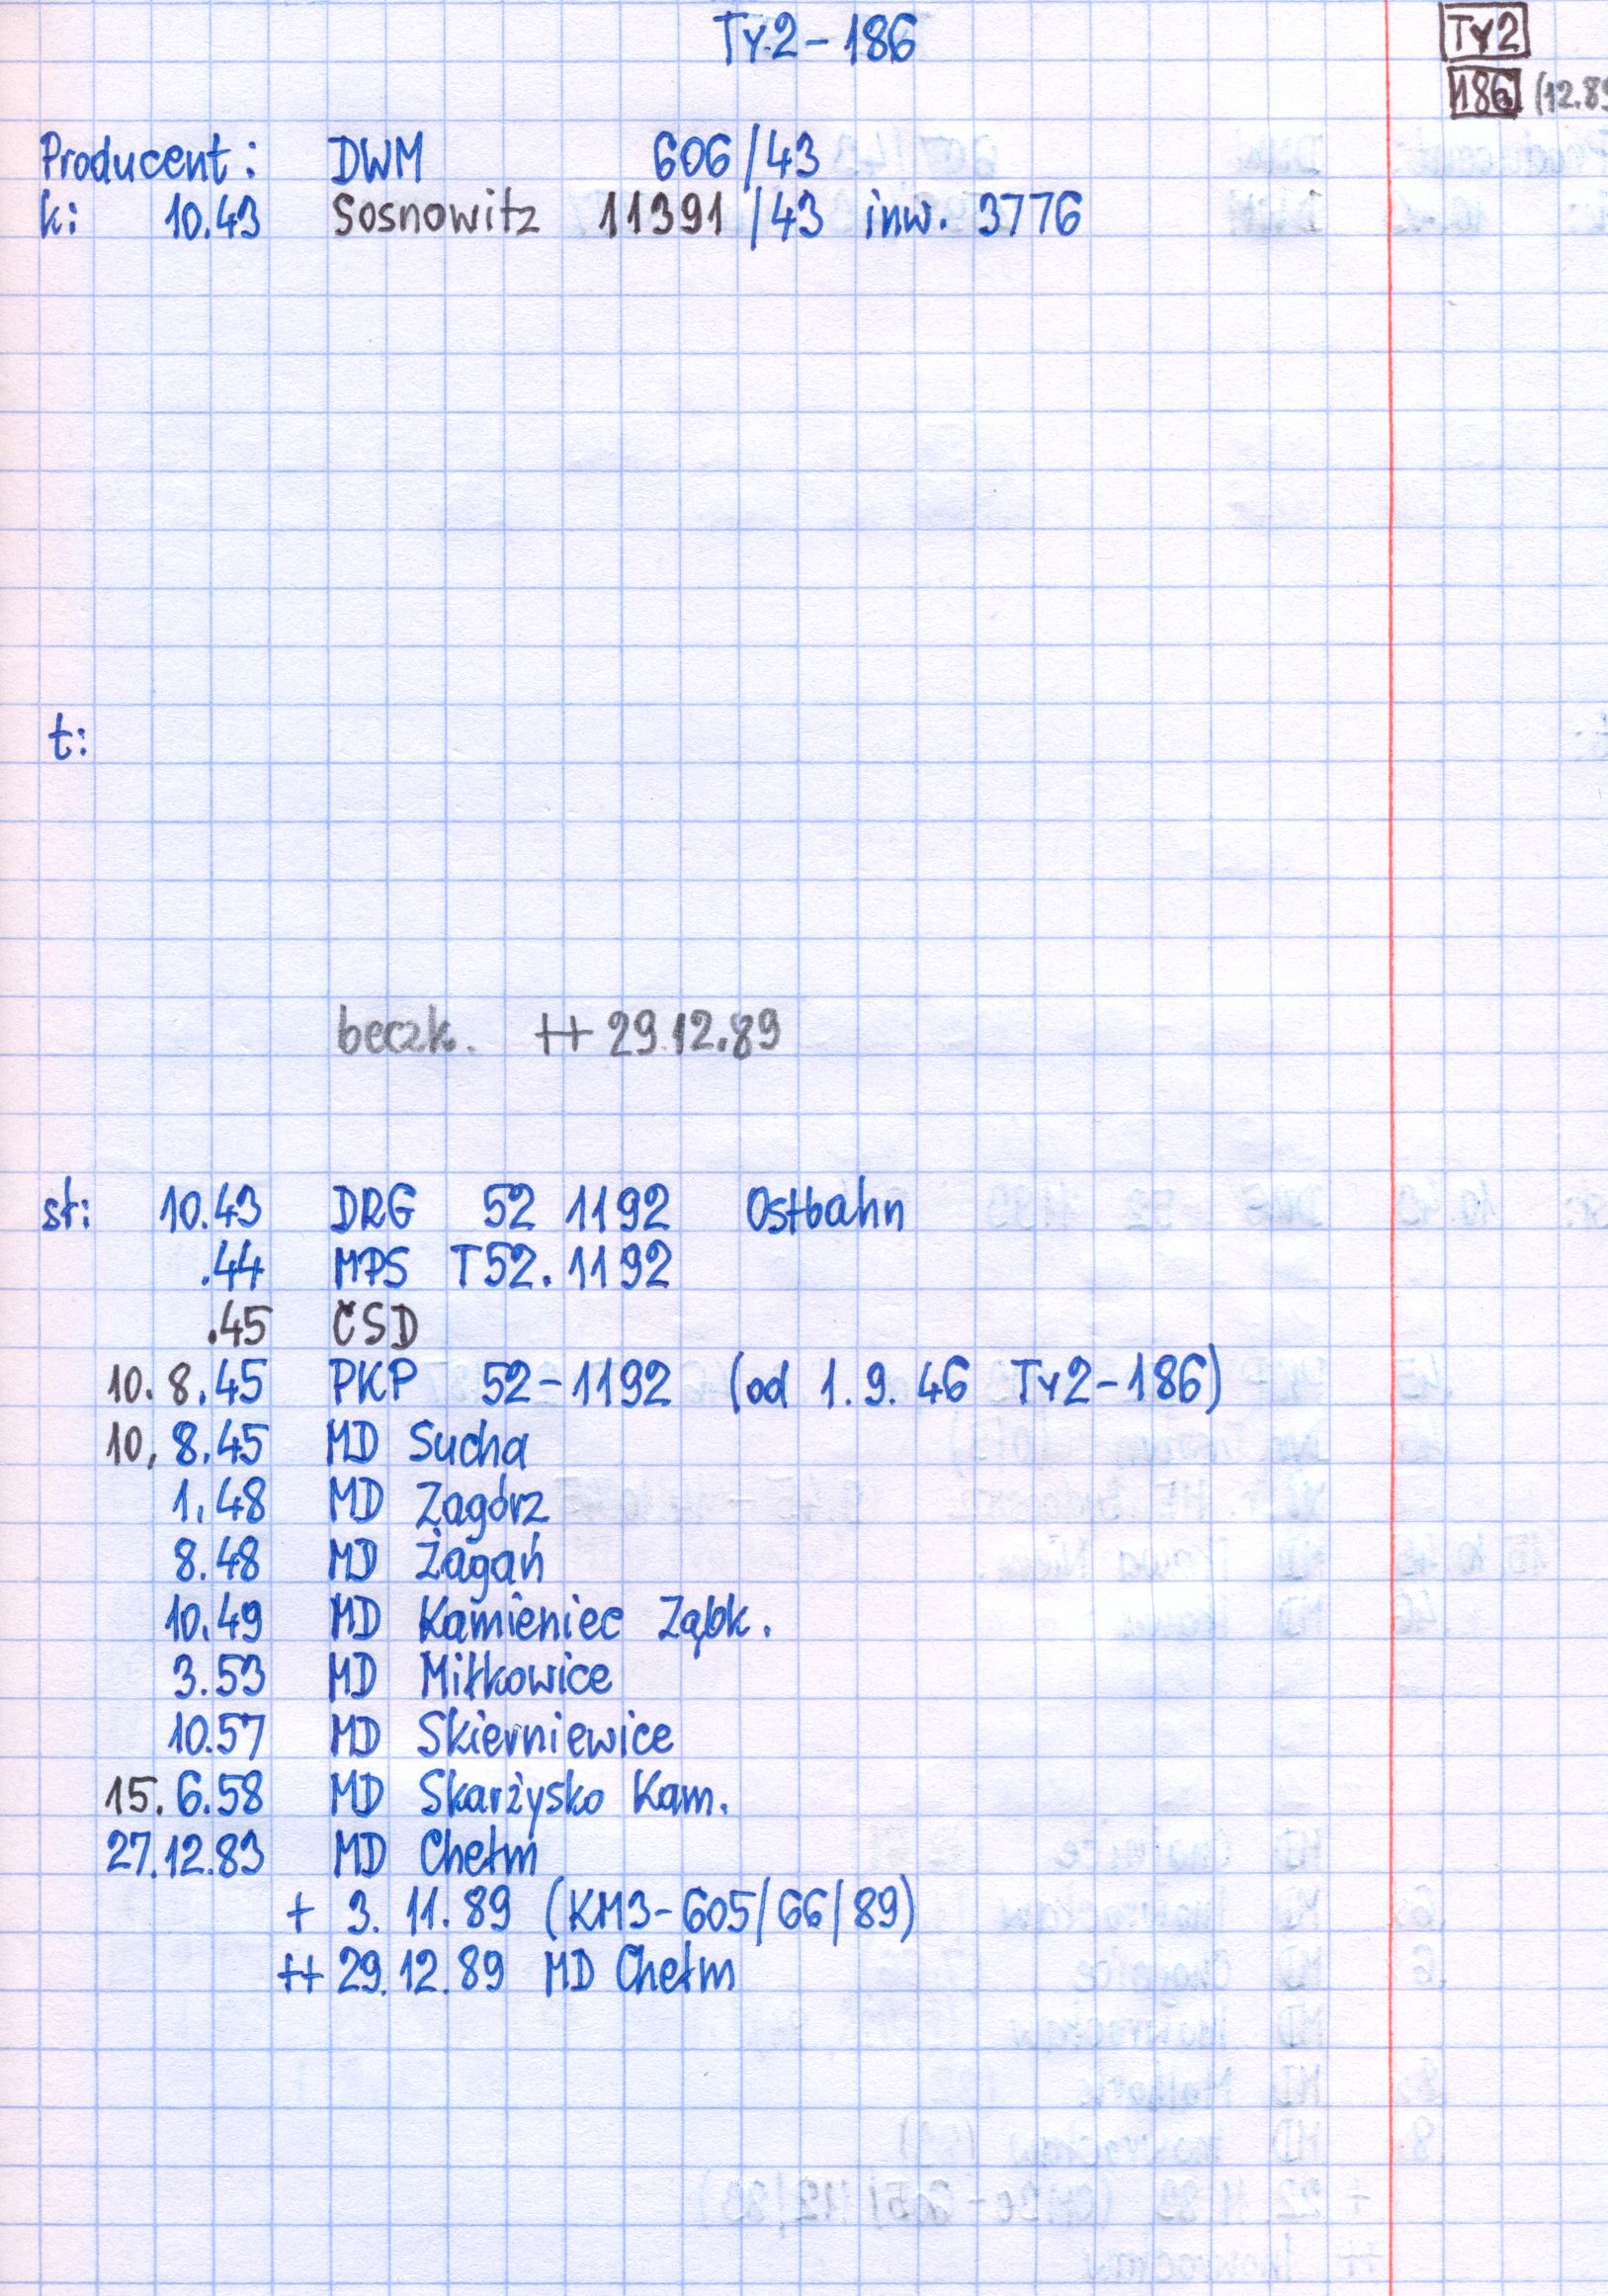 Ty2-186
Ty2
186 (12.89
Producent: DWM 606/43
k: 10.43 Sosnowitz 11391/43 inw. 3776
t:
beczk. ++ 29.12.89
st: 10.43 DRG 52 1192 Ostbahn
.44 MPS T52.1192
.45 ČSD
10.8.45 PKP 52-1192 (od 1.9.46 Ty2-186)
10,8.45 MD Sucha
1.48 MD Zagórz
8.48 MD Żagań
10.49 MD Kamieniec Ząbk.
3.53 MD Miłkowice
10.57 MD Skierniewice
15.6.58 MD Skarżysko Kam.
27.12.83 MD Chełm
+ 3.11.89 (KM3-605/66/89)
++ 29.12.89 MD Chełm